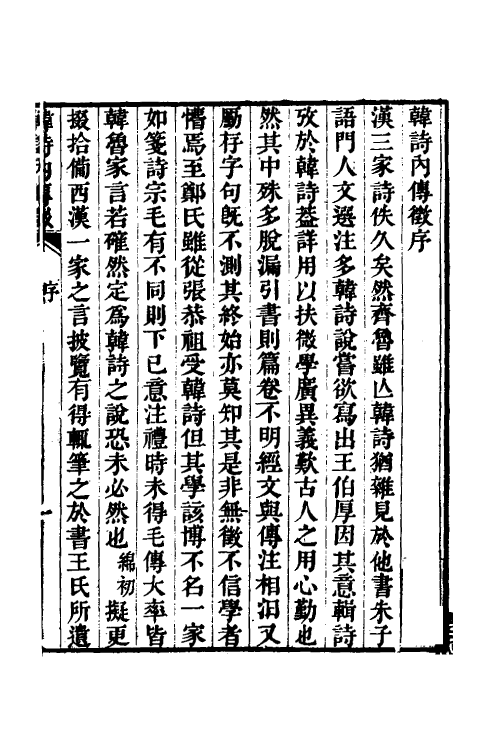 韓詩內傳徵序
漢三家詩佚久矣然齊魯雖亾韓詩猶雜見於他書朱子
語門人文選注多韓詩說嘗欲寫出王伯厚因其意輯詩
攷於韓詩葢詳用以扶微學廣異義歎古人之用心勤也
然其中殊多脫漏引書則篇卷不明經文與傳注相汨又
屬存字句旣不測其終始亦莫知其是非無徵不信學者
懵焉至鄭氏雖從張恭祖受韓詩但其學該博不名一家
如箋詩宗毛有不同則下已意注禮時未得毛傳大率皆
韓魯家言若確然定爲韓詩之說恐未必然也綿初擬更
掇拾僃西漢一家之言披覽有得輒筆之於書王氏所遺
序
一